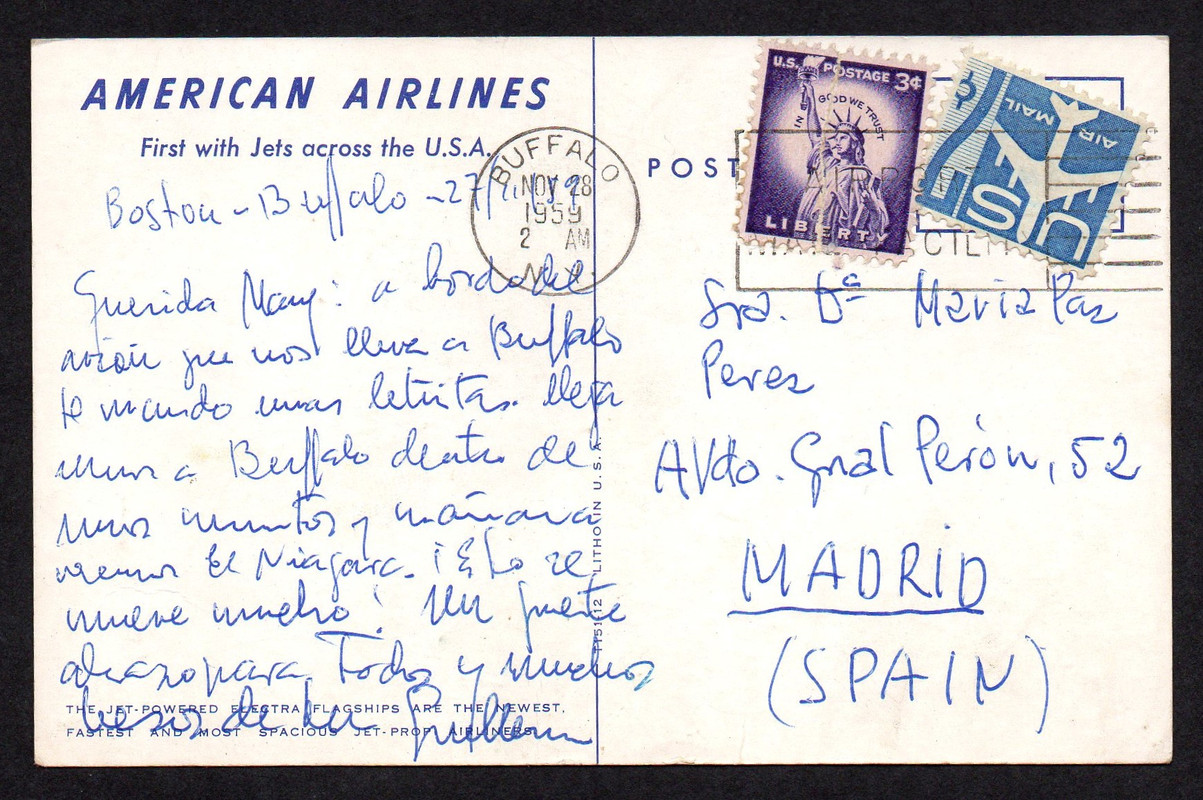 AMERICAN AIRLINES
First with Jets across the U.S.A.
Boston - Buffalo - 27/
Querida Mary: a bordo del
avión que nos lleva a Buffalo
te mando unas letritas. Llega
mos a Buffalo dentro de
unos minutos y mañana
vemos El Niágara. ¡Esto se
mueve mucho! Un fuerte
abrazo para Todos y muchos
besos de tu Guillermo
THE JET-POWERED ELECTRA FLAGSHIPS ARE THE NEWEST,
FASTEST AND MOST SPACIOUS JET-PROP AIRLINERS.
T151-12 LITHO IN U.S.A.
BUFFALO
NOV 28
1959
2 AM
N.Y.
POST
U.S. POSTAGE 3¢
IN GOD WE TRUST
LIBERTY
¢
AIR MAIL
US
AIRPO
MAI CILIT
Sra. Dª Maria Paz
Perez
Avda. Gral Perón, 52
MADRID
(SPAIN)